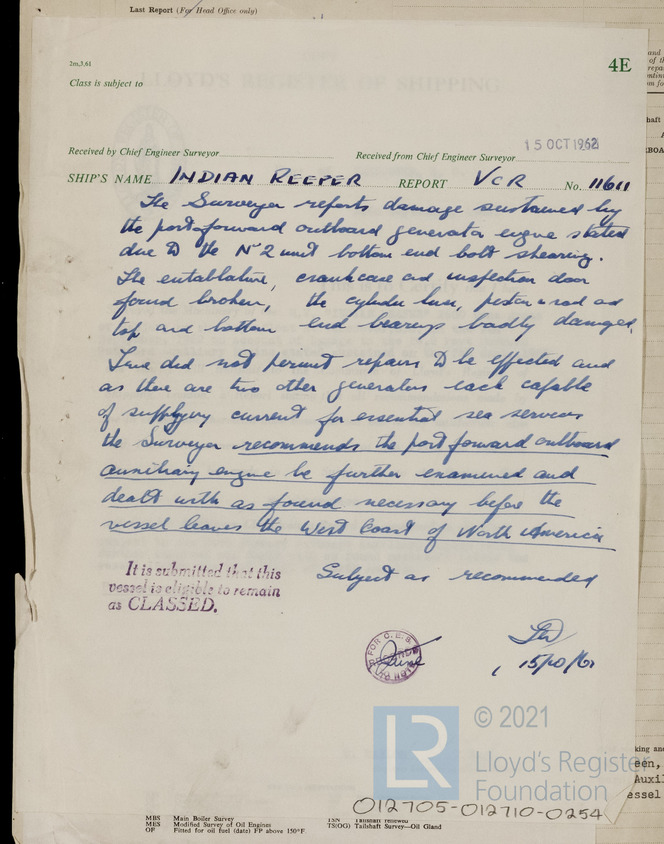 Last Report (For Head Office only)
2m,3,61
4E
Class is subject to
LLOYD'S REGISTER OF SHIPPING
15 OCT 1962
Received by Chief Engineer Surveyor
Received from Chief Engineer Surveyor
SHIP'S NAME INDIAN REEFER REPORT VCR No. 11611
The Surveyor reports damage sustained by
the port forward outboard generator engine stated
due to the No 2 unit bottom end bolt shearing.
The entablature, crankcase and inspection door
found broken, the cylinder liner, piston & rod and
top and bottom end bearings badly damaged.
Time did not permit repairs to be effected and
as there are two other generators each capable
of supplying current for essential sea services
the Surveyor recommends the port forward outboard
auxiliary engine be further examined and
dealt with as found necessary before the
vessel leaves the West Coast of North America
It is submitted that this
vessel is eligible to remain
as CLASSED.
Subject as recommended
FOR C.E.S.
RECORDS
15/10/62
© 2021
LR
Lloyd's Register
Foundation
012705-012710-0254
MBS Main Boiler Survey
MES Modified Survey of Oil Engines
OF Fitted for oil fuel (date) FP above 150°F.
TSN Tailshaft renewed
TS(OG) Tailshaft Survey—Oil Gland